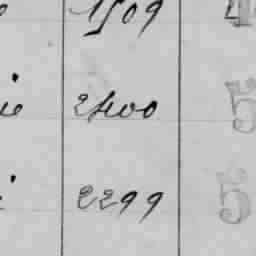 1509 4
2400 5
2299 5